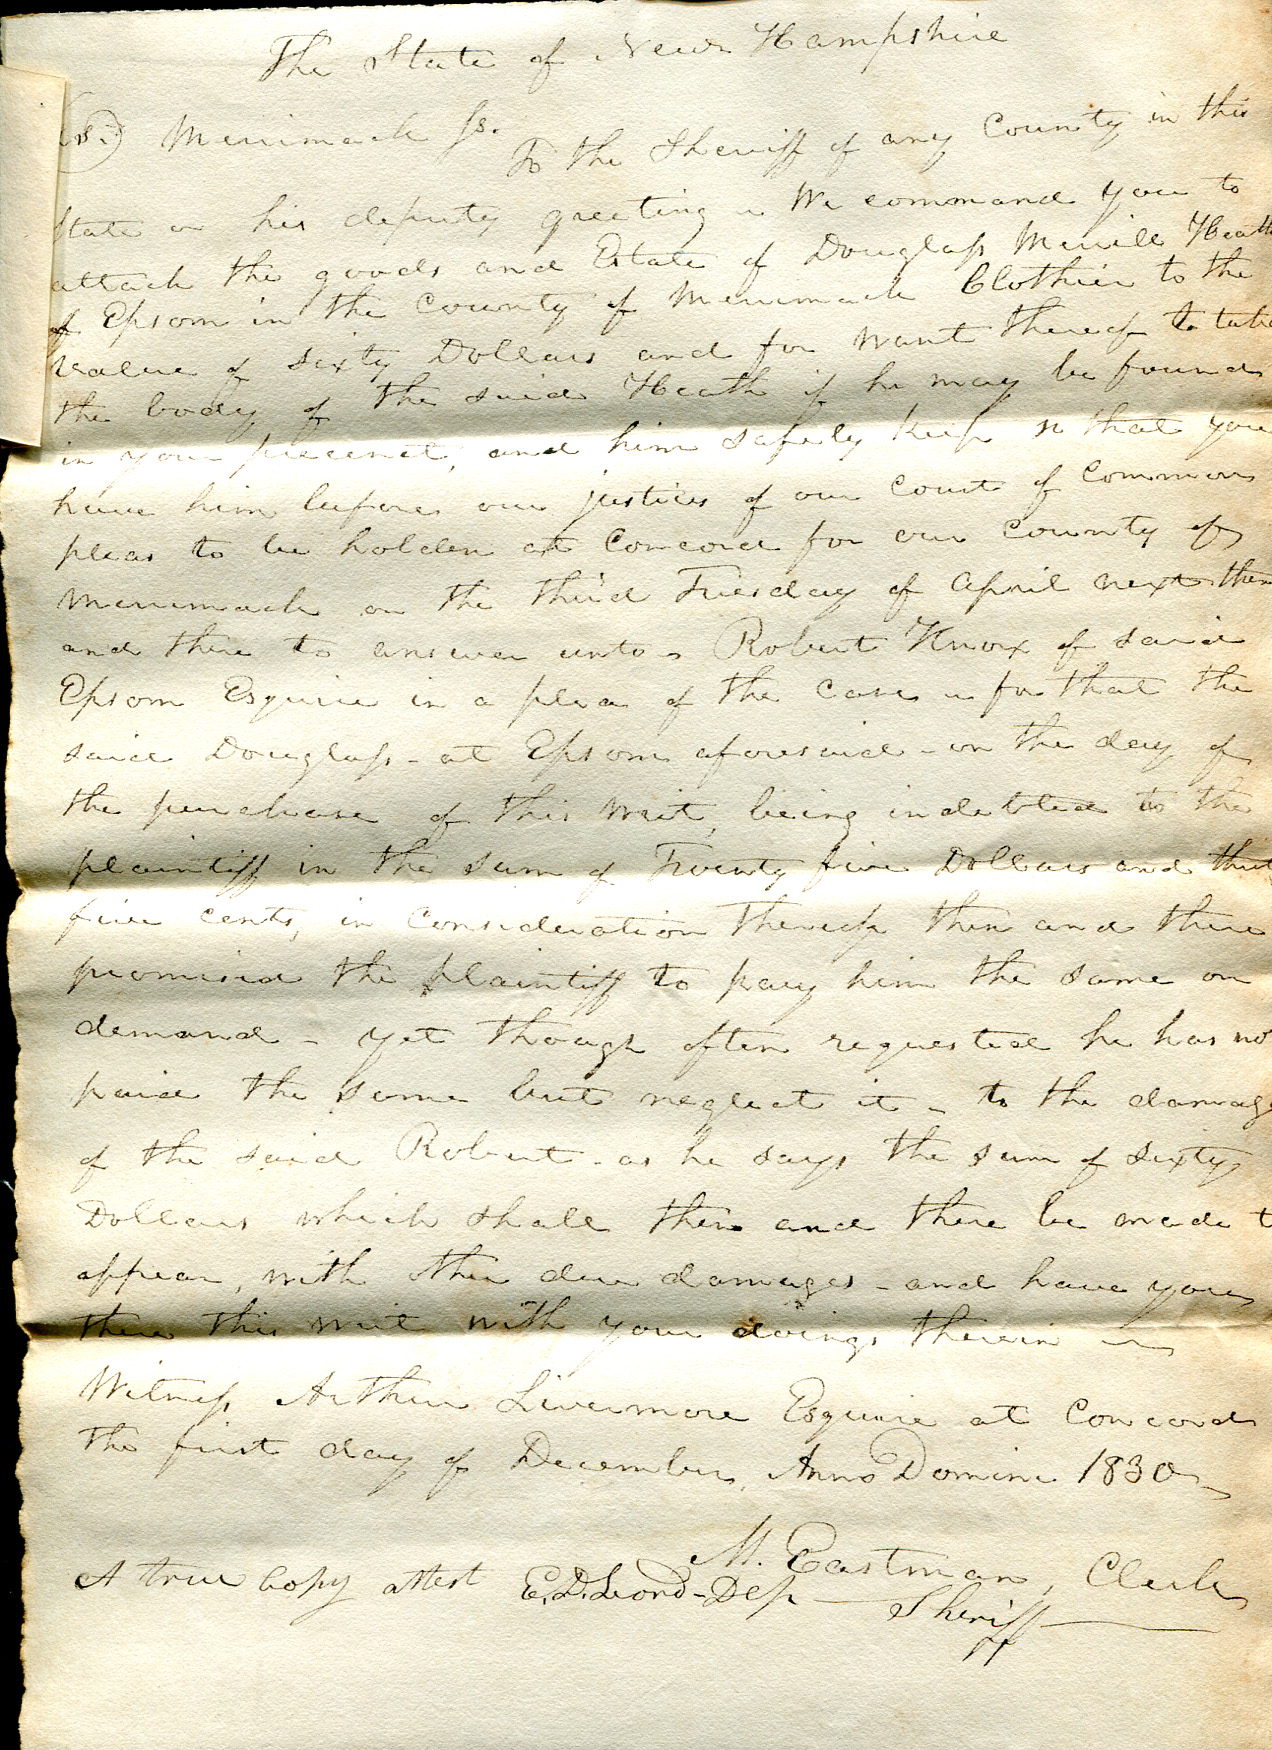 The State of New Hampshire
(s.) Merrimack ss.
To the Sheriff of any County in this
State or his deputy greeting We command you to
attach the goods and Estate of Douglass Merrill Heath
of Epsom in the County of Merrimack Clothier to the
value of sixty Dollars and for want thereof to take
the body of the said Heath if he may be found
in your precinct, and him safely keep so that you
have him before our justices of our court of common
pleas to be holden at Concord for our County of
Merrimack on the third Tuesday of April next then
and there to answer unto Robert Knox of said
Epsom Esquire in a plea of the case for that the
said Douglass - at Epsom aforesaid - on the day of
the purchase of this writ, being indebted to the
plaintiff in the sum of Twenty five Dollars and thirt
five cents, in consideration thereof then and there
promised the plaintiff to pay him the same on
demand - yet though often requested he has not
paid the same but neglect it - to the damage
of the said Robert - as he says the sum of sixty
Dollars which shall then and there be made t
appear, with other due damages - and have you
there this writ with your doings therein
Witness Arthur Livermore Esquire at Concord
the first day of December, Anno Domini 1830
M. Eastman, Clerk
A true Copy attest E.D. Leord - Dep Sheriff